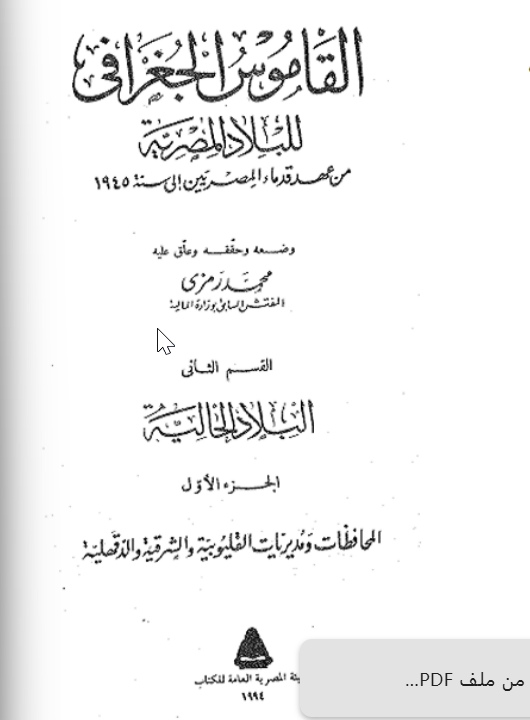 القاموس الجغرافى
للبلاد المصرية
من عهد قدماء المصريين إلى سنة ١٩٤٥
وضعه وحققه وعلق عليه
محمد رمزى
المفتش السابق بوزارة المالية
القسم الثانى
البلاد الحالية
الجزء الأول
المحافظات ومديريات القليوبية والشرقية والدقهلية
يئة المصرية العامة للكتاب
١٩٩٤
من ملف PDF...